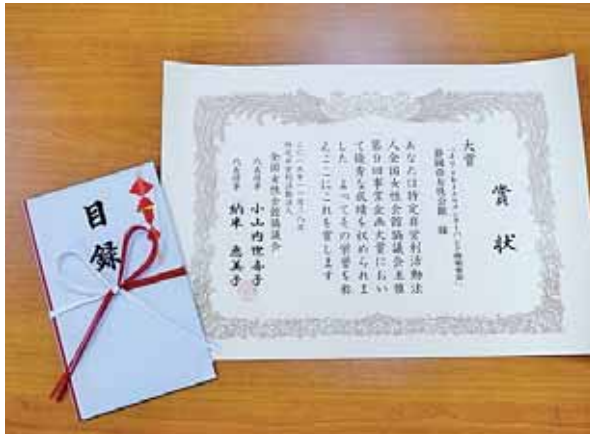 賞状
大賞
静岡市女性会館 様
あなたは特定非営利活動法
人全国女性会館協議会主催
第9回事業企画大賞におい
て優秀な成績を収められま
した よってその栄誉を称
えここにこれを賞します
特定非営利活動法人
全国女性会館協議会
代表理事 小山内世喜子
代表理事 納米 恵美子
目録